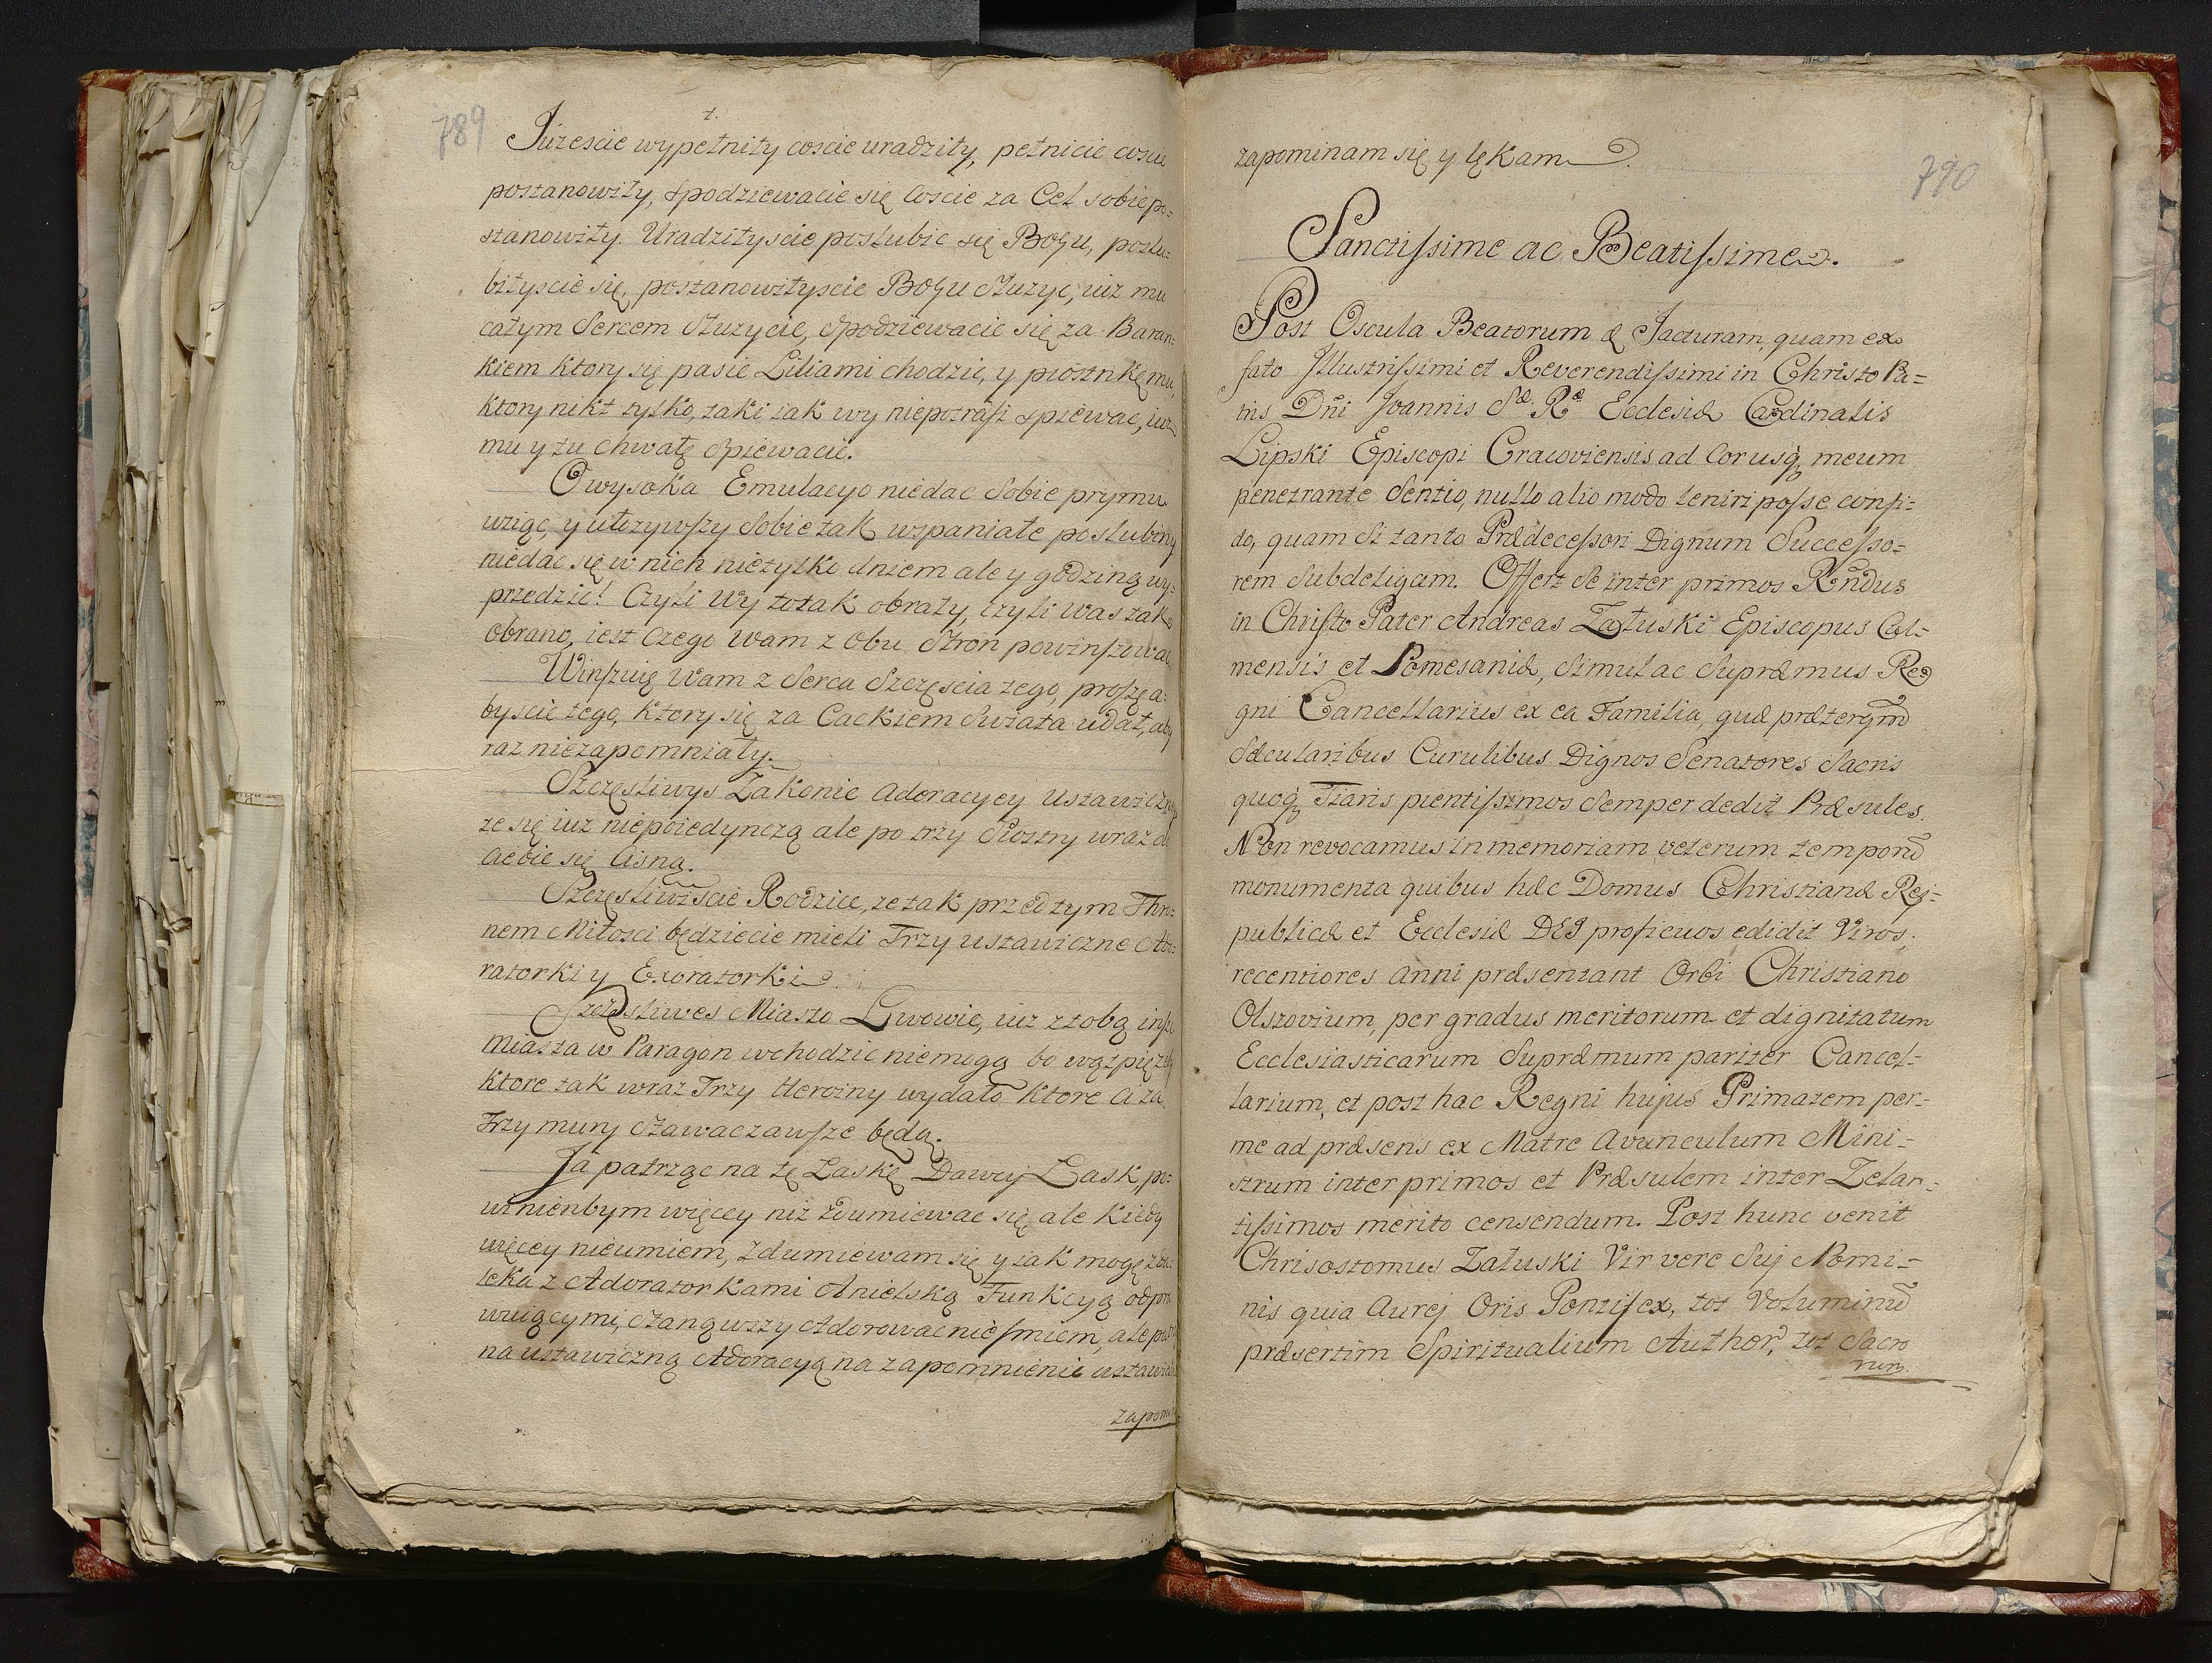 789
t.
Juzescie wypełniły coscie uradziły, pełnicie coscie
postanowiły, spodziewacie się coscie za Cel sobie po=
stanowiły. Uradziłyscie poslubic się BOgu, poslu=
biłyscie się, postanowiłyscie BOgu służyc, iuz mu
całym Sercem Służycie, Spodziewacie się za Baran=
kiem ktory się pasie Liliami chodzic, y piosnkę mu,
ktory nikt tylko, taki iak wy niepotrafi spiewac, iuz
mu y tu chwałę spiewacie.
O wysoka Emulacyo niedac Sobie prymu
wziąc, y ułozywszy Sobie tak wspaniałe poslubiny
niedac się w nich nietylko dniem ale y godziną wy=
przedzic! Czyli Wy to tak obrały, czyli Was tak
obrano, iest czego wam z obu Stron powinszowac
Winszuię Wam z Serca Szczęscia tego, proszę a=
byscie tego, ktory się za Cackiem Swiata udał, aby
raz niezapomniały.
Szczęsliwys Zakonie Adoracyey Ustawiczney
ze się iuz niepoiedynczą ale po trzy Siostry wraz do
ciebie się cisną.
Szczęsliwiscie Rodzice, ze tak przed tym Thro=
nem Miłosci będziecie mieli Trzy ustawiczne Ado=
ratorki y Exoratorki.
Szczęsliwes Miasto Lwowie, iuz z tobą insze
Miasta w Paragon wchodzic niemogą bo wątpię zeby
ktore tak wraz Trzy Heroiny wydało ktore ci za
Trzy mury stawac zawsze będą.
Ja patrząc na tę Łaskę Dawcy Łask, po=
winienbym więcey niz zdumiewac się, ale kiedy
więcey nieumiem, zdumiewam się y iak mogę zda=
leka z Adoratorkami Anielską Funkcyą odpra
wuiącymi, stanąwszy Adorowac niesmiem, ale patrz
na ustawiczną Adoracyą na zapomnienie ustawicz
zapomi
790
zapominam się y lękam.
Sanctissime ac Beatissime.
Post Oscula Beatorum & Jacturam, quam ex
fato Illustrissimi et Reverendissimi in Christo Pa=
tris Dñi Joannis Sæ Ræ Ecclesiæ Cardinalis
Lipski Episcopi Cracoviensis ad Cor usq meum
penetrante Sentio, nullo alio modo leniri posse confi=
do, quam si tanto Prædecessori Dignum Successo=
rem Subdeligam. Offert Se inter primos Rñdus
in Christo Pater Andreas Załuski Episcopus Cul=
mensis et Pomesaniæ, Simul ac Supræmus Re
gni Cancellarius ex ea Familia, quæ præterqm̄
Sæcularibus Curulibus Dignos Senatores Sacris
quoq Tiaris pientissimos Semper dedit Præsules.
Non revocamus in memoriam veterum temporū
monumenta quibus hæc Domus Christianæ Rei=
publicæ et Ecclesiæ DEI proficuos edidit Viros;
recentiores anni præsentant Orbi Christiano
Olszovium, per gradus meritorum et dignitatum
Ecclesiasticarum Supræmum pariter Cancel=
larium, et post hac Regni hujus Primatem per=
me ad præsens ex Matre Avunculum Mini=
strum inter primos et Præsulem inter Zelan=
tissimos merito censendum. Post hunc venit
Chrisostomus Załuski Vir vere Suj Nomi=
nis quia Aurej Oris Pontifex, tot Voluminū
præsertim Spiritualium Author, tot Sacro
rum.